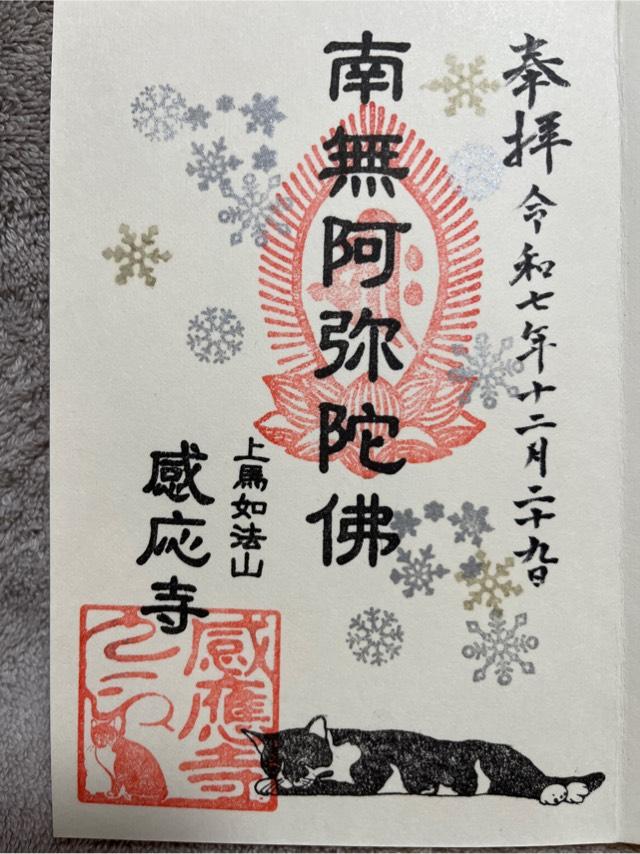 奉拝 令和七年十二月二十九日
南無阿弥陀佛
上馬如法山
感応寺
感應寺